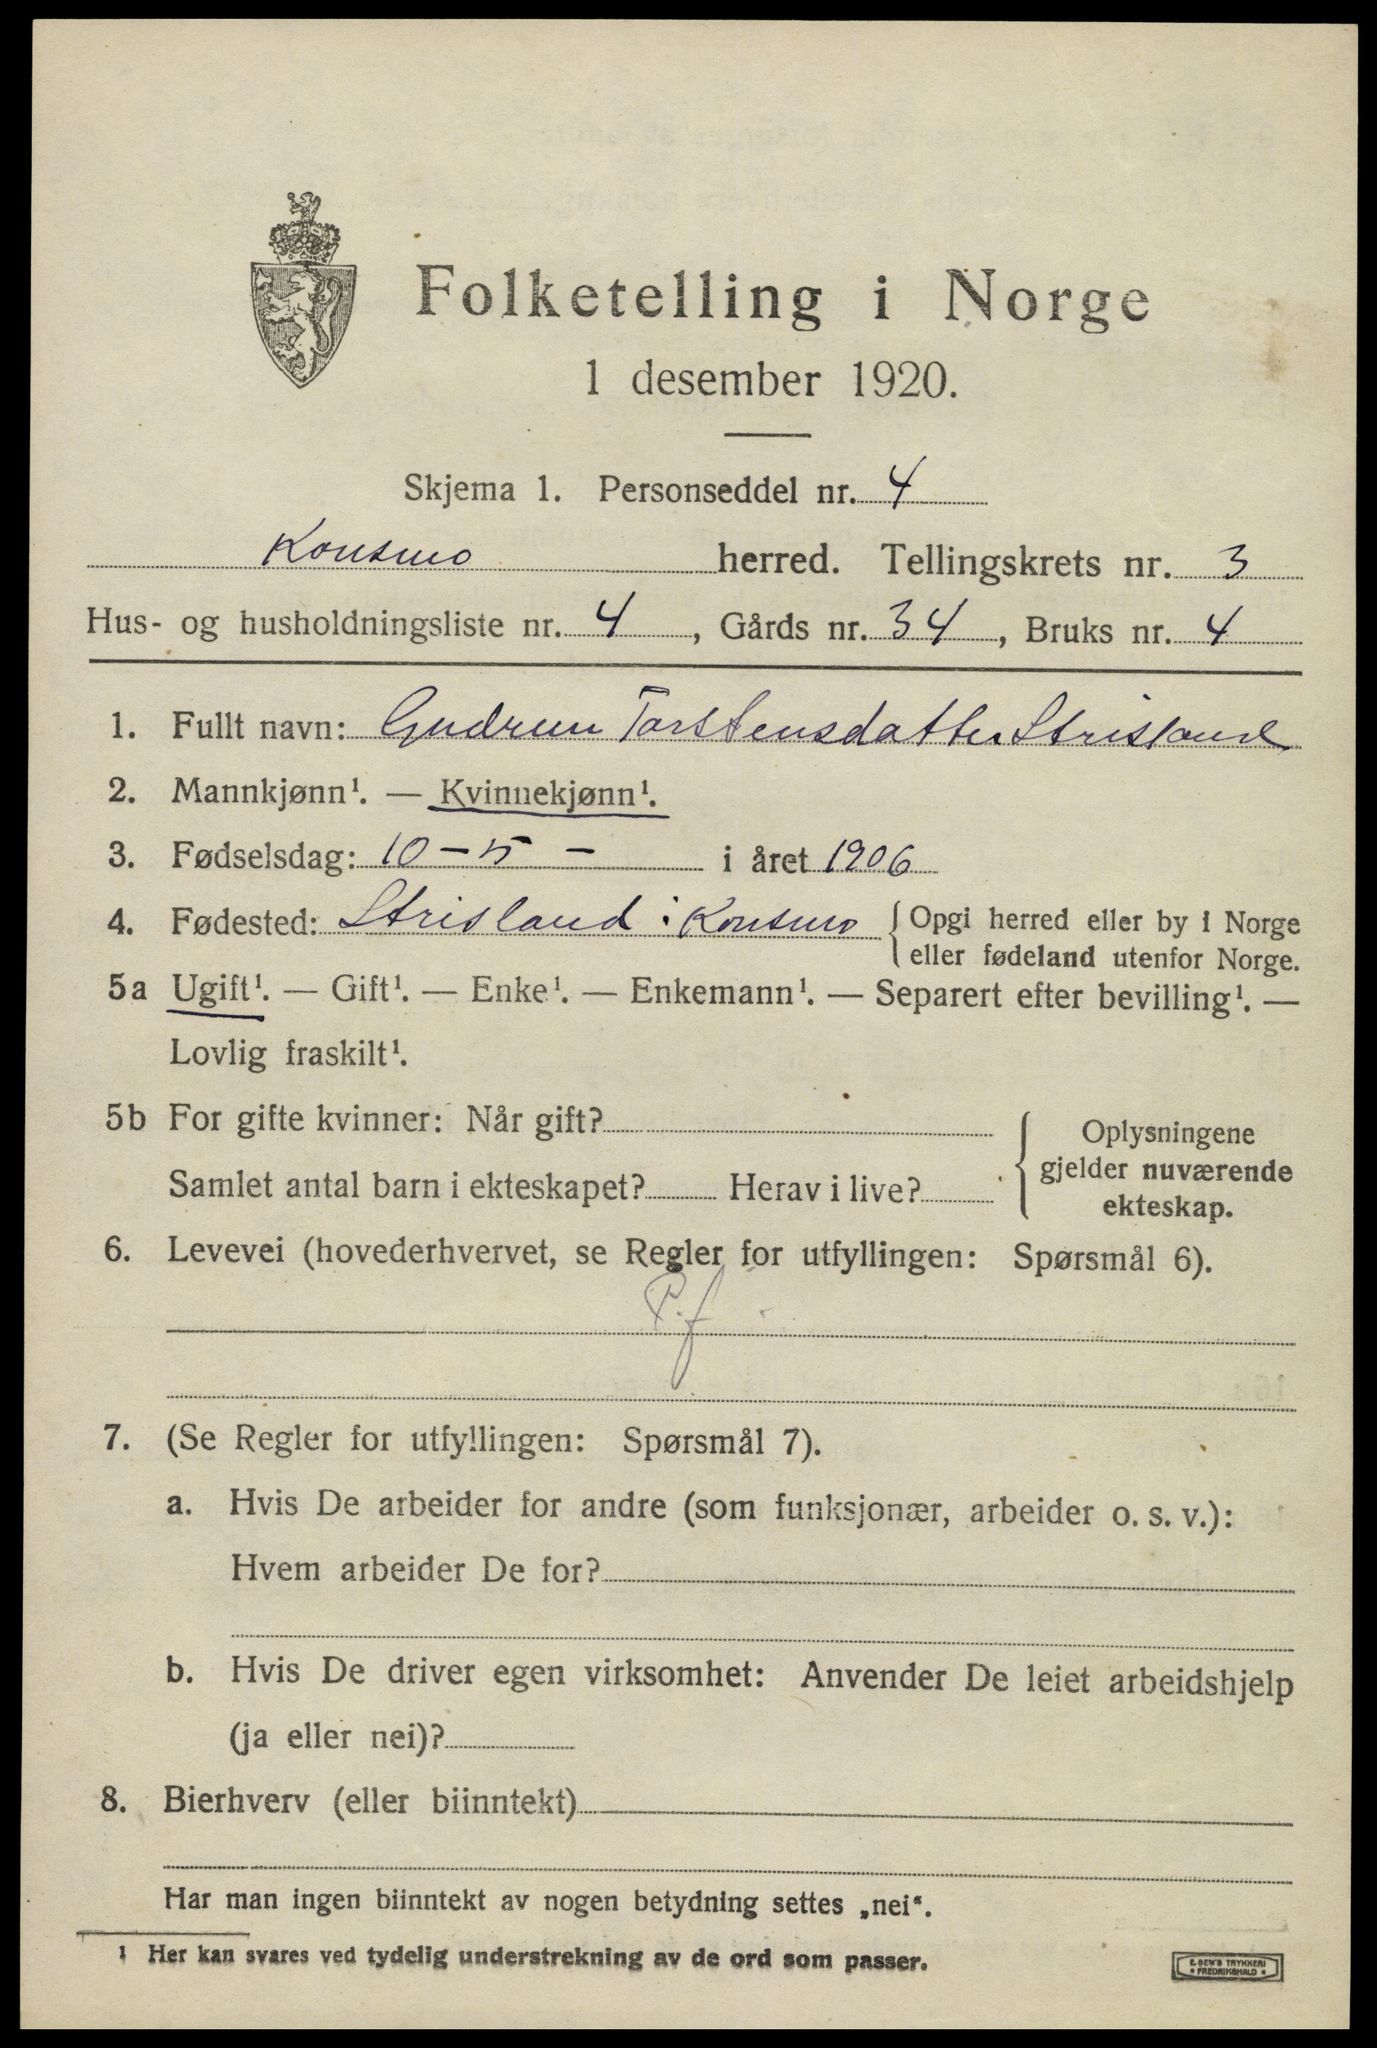 Folketelling i Norge
1 desember 1920.
Skjema 1. Personseddel nr. 4
Konsmo herred. Tellingskrets nr. 3
Hus- og husholdningsliste nr. 4, Gårds nr. 34, Bruks nr. 4
1. Fullt navn: Gudrun Torstensdatter Strisland
2. Mannkjønn¹. — Kvinnekjønn¹.
3. Fødselsdag: 10 – 5 – i året 1906
4. Fødested: Strisland i Konsmo { Opgi herred eller by i Norge
eller fødeland utenfor Norge.
5a Ugift¹. — Gift¹. — Enke¹. — Enkemann¹. — Separert efter bevilling¹. —
Lovlig fraskilt¹.
5b For gifte kvinner: Når gift?
Samlet antal barn i ekteskapet? Herav i live?
Oplysningene
gjelder nuværende
ekteskap.
6. Levevei (hovederhvervet, se Regler for utfyllingen: Spørsmål 6).
P.f
7. (Se Regler for utfyllingen: Spørsmål 7).
a. Hvis De arbeider for andre (som funksjonær, arbeider o. s. v.):
Hvem arbeider De for?
b. Hvis De driver egen virksomhet: Anvender De leiet arbeidshjelp
(ja eller nei)?
8. Bierhverv (eller biinntekt)
Har man ingen biinntekt av nogen betydning settes „nei“.
1 Her kan svares ved tydelig understrekning av de ord som passer.
E. SEM'S TRYKKERI
• FREDRIKSHALD •